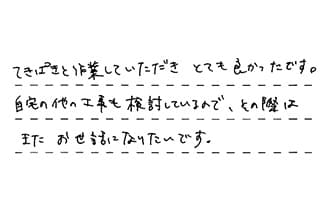 てきぱきと作業していただき とても良かったです。
自宅の他の工事も検討しているので、その際は
また お世話になりたいです。